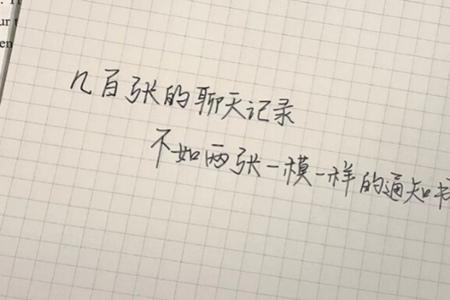 ur t
en
几百张的聊天记录
不如两张一模一样的通知书